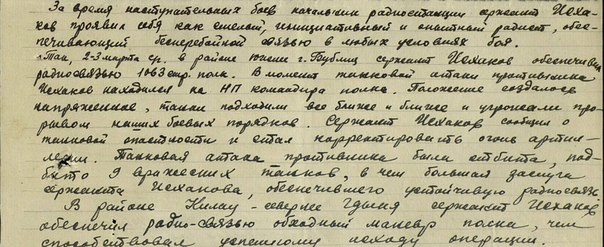 За время наступательных боев начальник радиостанции сержант Исха-
ков проявил себя как смелый, инициативный и опытный радист, обес-
печивающий бесперебойной связью в любых условиях боя.
Так, 2-3 марта с.г. в районе южнее г. Бублиц сержант Исхаков обеспечивал
радиосвязью 1063 стр. полк. В момент танковой атаки противника
Исхаков находился на НП командира полка. Положение создалось
напряженное, танки подходили все ближе и ближе и угрожали про-
рывом наших боевых порядков. Сержант Исхаков сообщил о
танковой опасности и стал корректировать огонь артил-
лерии. Танковая атака противника была отбита, под-
бито 9 вражеских танков, в чем большая заслуга
сержанта Исхакова, обеспечившего устойчивую радиосвязь.
В районе - севернее Гдыня сержант Исхаков
обеспечил радио-связью обходный маневр полка, чем
способствовал успешному исходу операции